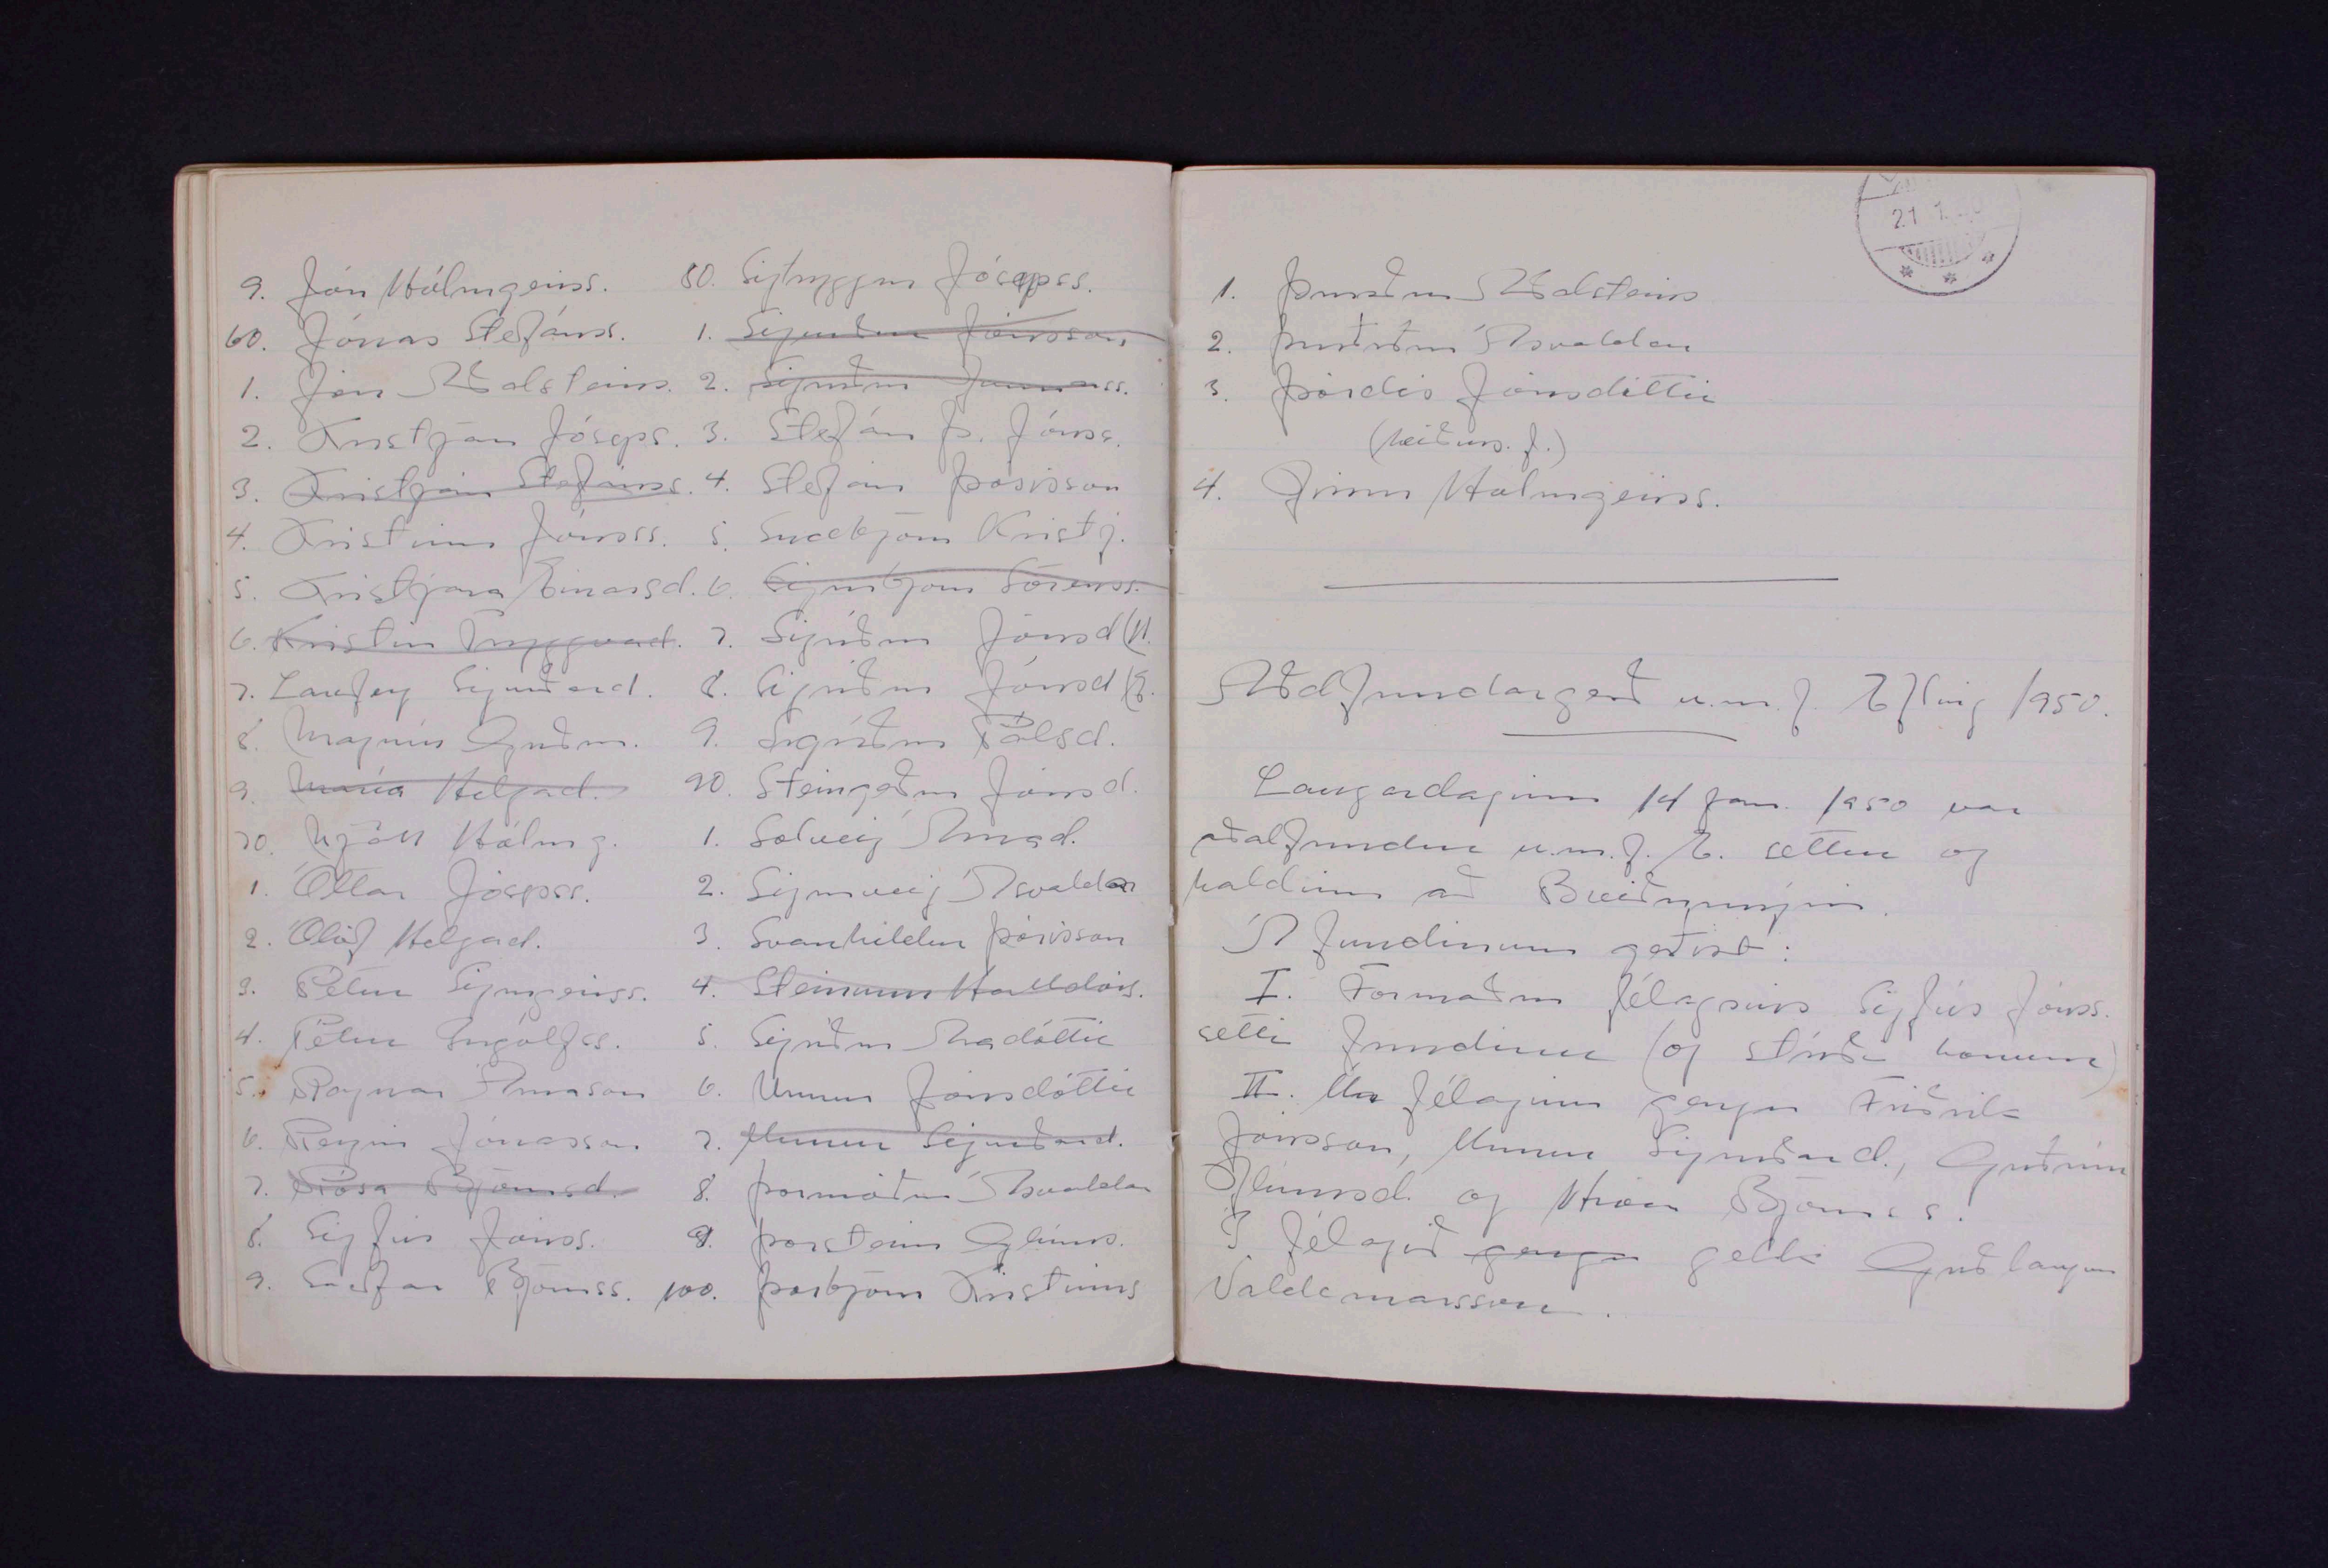 9. Jón Hólmgeirss.
60. Jónas Stefánss.
1. Jón Aðalsteins.
2. Kristján Jóseps.
3. Kristján Stefánss.
4. Kristinn Jónss.
5. Kristjana Einarsd.
6. Kristín Tryggvad.
7. Laufey Sigurðard.
8. Magnús Guðm.
9. María Helgad.
70. Njáll Hólmg.
1. Óttar Jóspss.
2. Ólöf Helgad.
3. Pétur Sigurgeirss.
4. Pétur Ingólfss.
5. Ragnar Árnason
6. Reynir Jónasson
7. Rósa Björnsd.
8. Sigfús Jónss.
9. Sæþór Björnss.
80. Sigtryggur Jósepss.
1. Sigurður Jónsson
2. Sigurður
3. Stefán Þ. Jónss.
4. Stefán Þórisson
5. Snæbjörn Kristj.
6. Sigurbjörn Sörenss.
7. Sigríður Jónsd (H.
8. Sigríður Jónsd
9. Sigríður Pálsd.
90. Steingerður Jónsd.
1. Sólveig Árnad.
2. Sigurveig Ásvaldar
3. Svanhildur Þórisson
4. Steinunn Halldórs.
5. Sigríður Aradóttir
6. Unnur Jónsdóttir
7. Unnur Sigurðard.
8. Þormóður Ásvaldar
9. Þorsteinn Glúms.
100. Þorbjörn Kristinns
21 1
1. Þuríður Aðalsteins
2. Þuríður Ásvaldar
3. Þórdís Jónsdóttir
(heiðurs. f.)
4. Finnur Hólmgeirss.
Aðalfundargerð u.m.f. Efling 1950.
Laugardaginn 14 jan. 1950 var
aðalfundur u.m.f. E. settur og
haldinn að Breiðumýri.
Á fundinum gerðist:
I. Formaður félagsins Sigfús Jónss.
setti fundinn (og stýrði honum)
II. Úr félaginu gengu Friðrik
Jónsson, Unnur Sigurðard., Guðrún
Glúmsd. og Hróar Björnss.
Í félagið gengu gekk Guðlaugur
Valdemarsson.